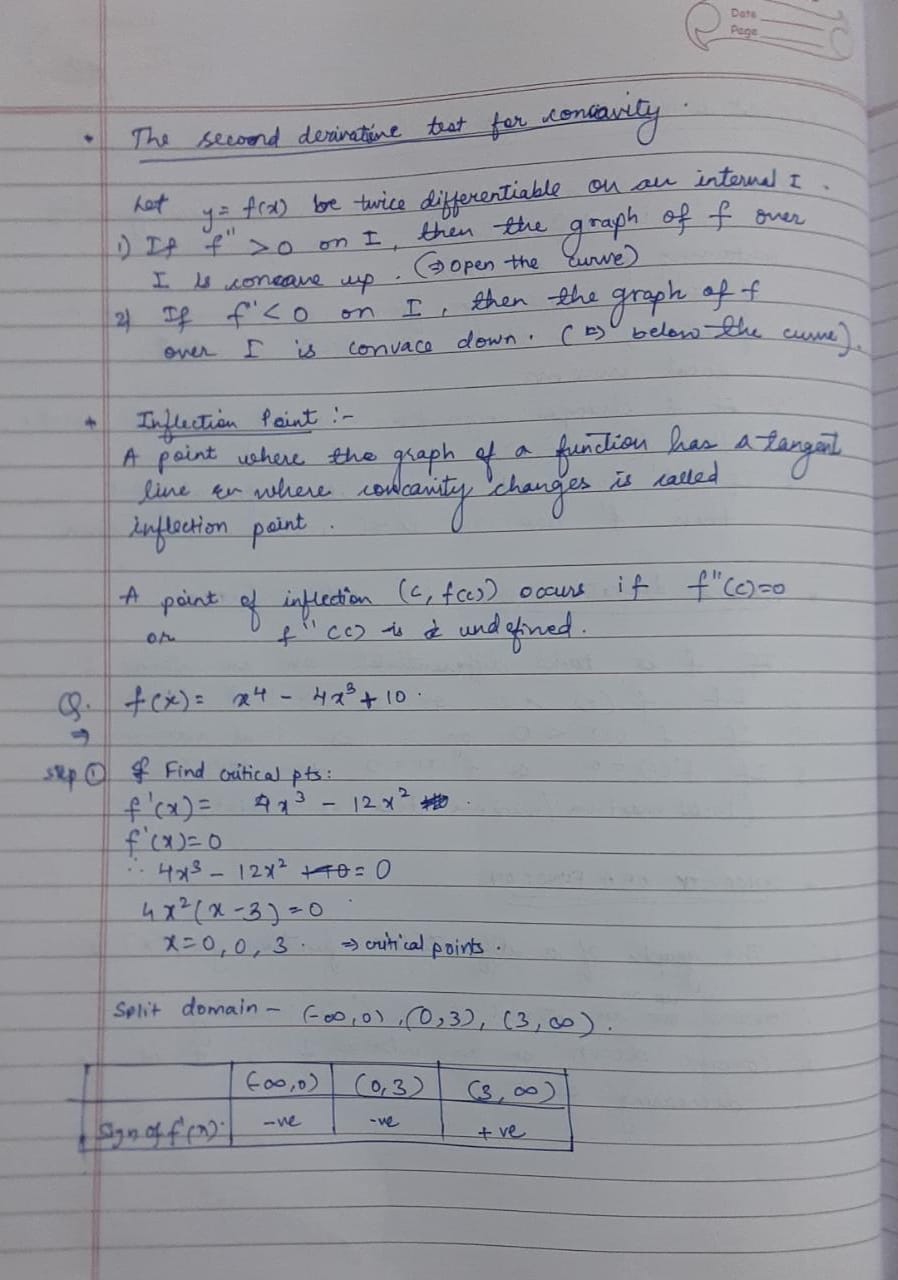 Date
Page
• The second derivative test for concavity.
Let y = f(x) be twice differentiable on an interval I.
1) If f" > 0 on I, then the graph of f over
I is concave up. (⇒ open the curve)
2) If f' < 0 on I, then the graph of f
over I is convace down. (⇒ below the curve).
* Inflection Point :-
A point where the graph of a function has a tangent
line or where concavity changes is called
inflection point.
A point of inflection (c, f(c)) occurs if f"(c)=0
or f"(c) is undefined.
Q. f(x) = x⁴ - 4x³ + 10.
⇒
step ① Find critical pts:
f'(x) = 4x³ - 12x²
f'(x)=0
∴ 4x³ - 12x² +10 = 0
4x²(x-3)=0
x=0,0,3. ⇒ critical points.
Split domain - (-∞,0), (0,3), (3,∞).
(-∞,0) (0,3) (3,∞)
Sign of f'(x). -ve -ve +ve